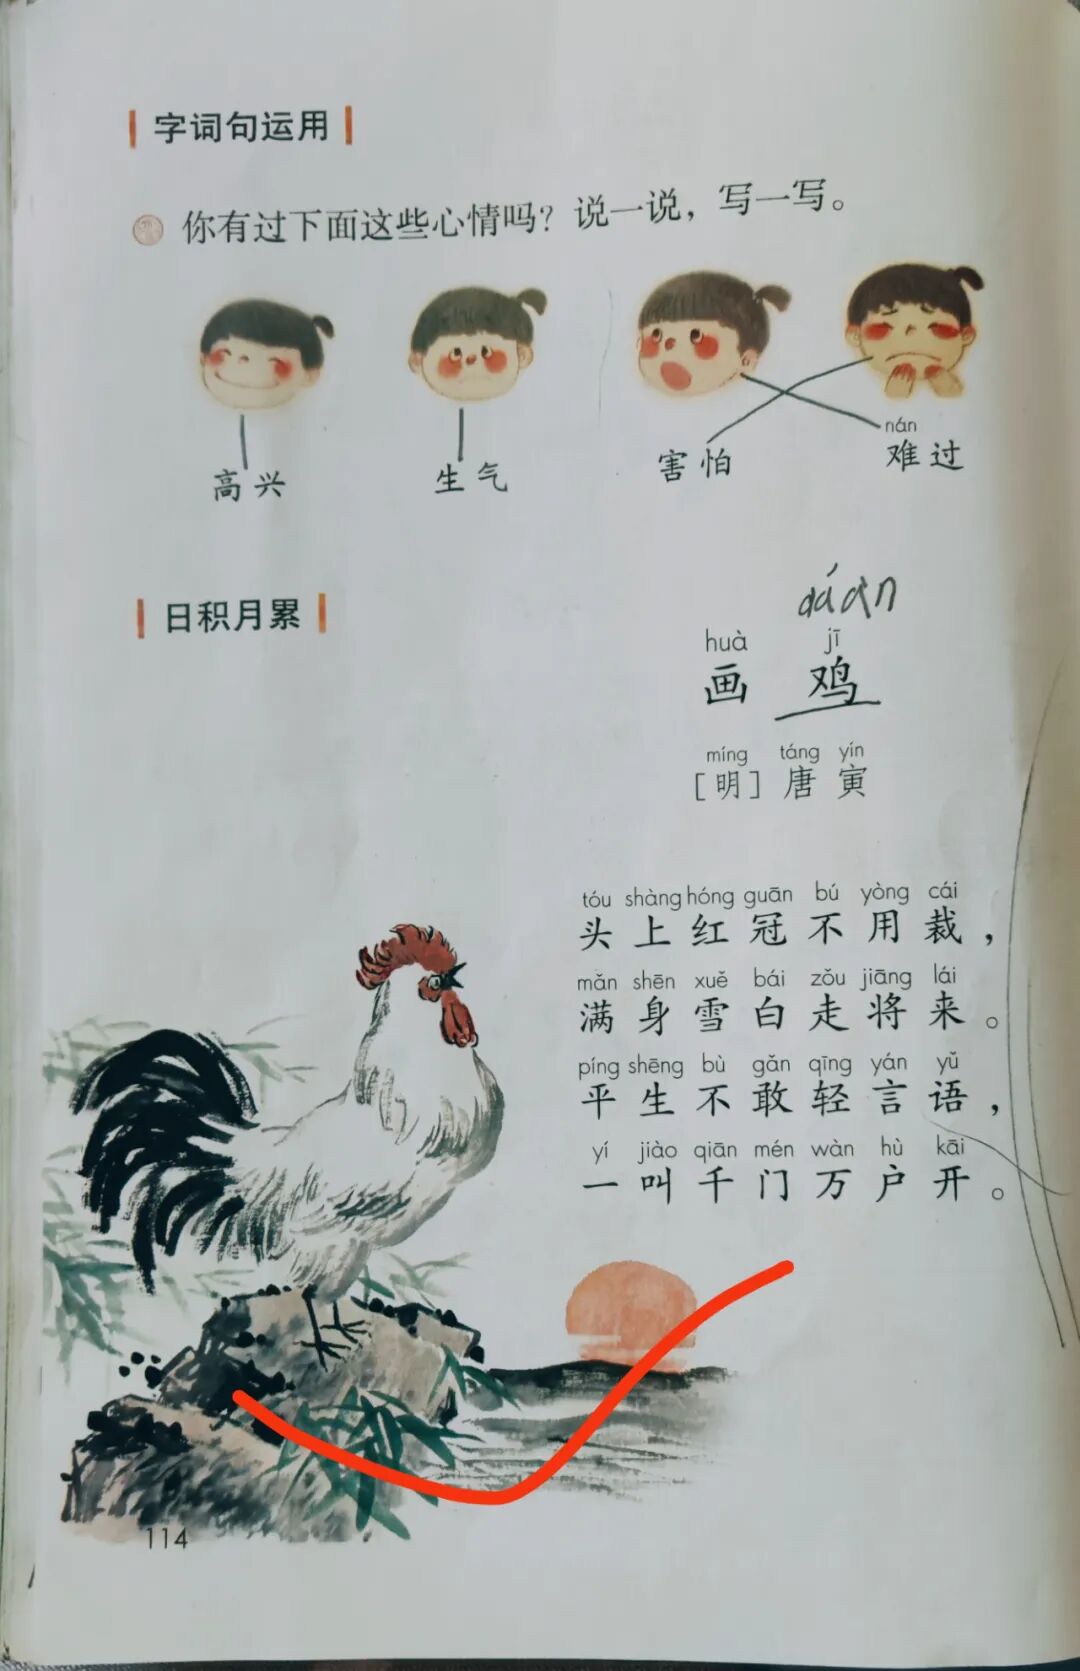 字词句运用
你有过下面这些心情吗？说一说，写一写。
nán
高兴 生气 害怕 难过
日积月累
huà jī
画 鸡
míng táng yín
［明］唐寅
tóu shàng hóng guān bú yòng cái
头上红冠不用裁，
mǎn shēn xuě bái zǒu jiāng lái
满身雪白走将来。
píng shēng bù gǎn qīng yán yǔ
平生不敢轻言语，
yí jiào qiān mén wàn hù kāi
一叫千门万户开。
114